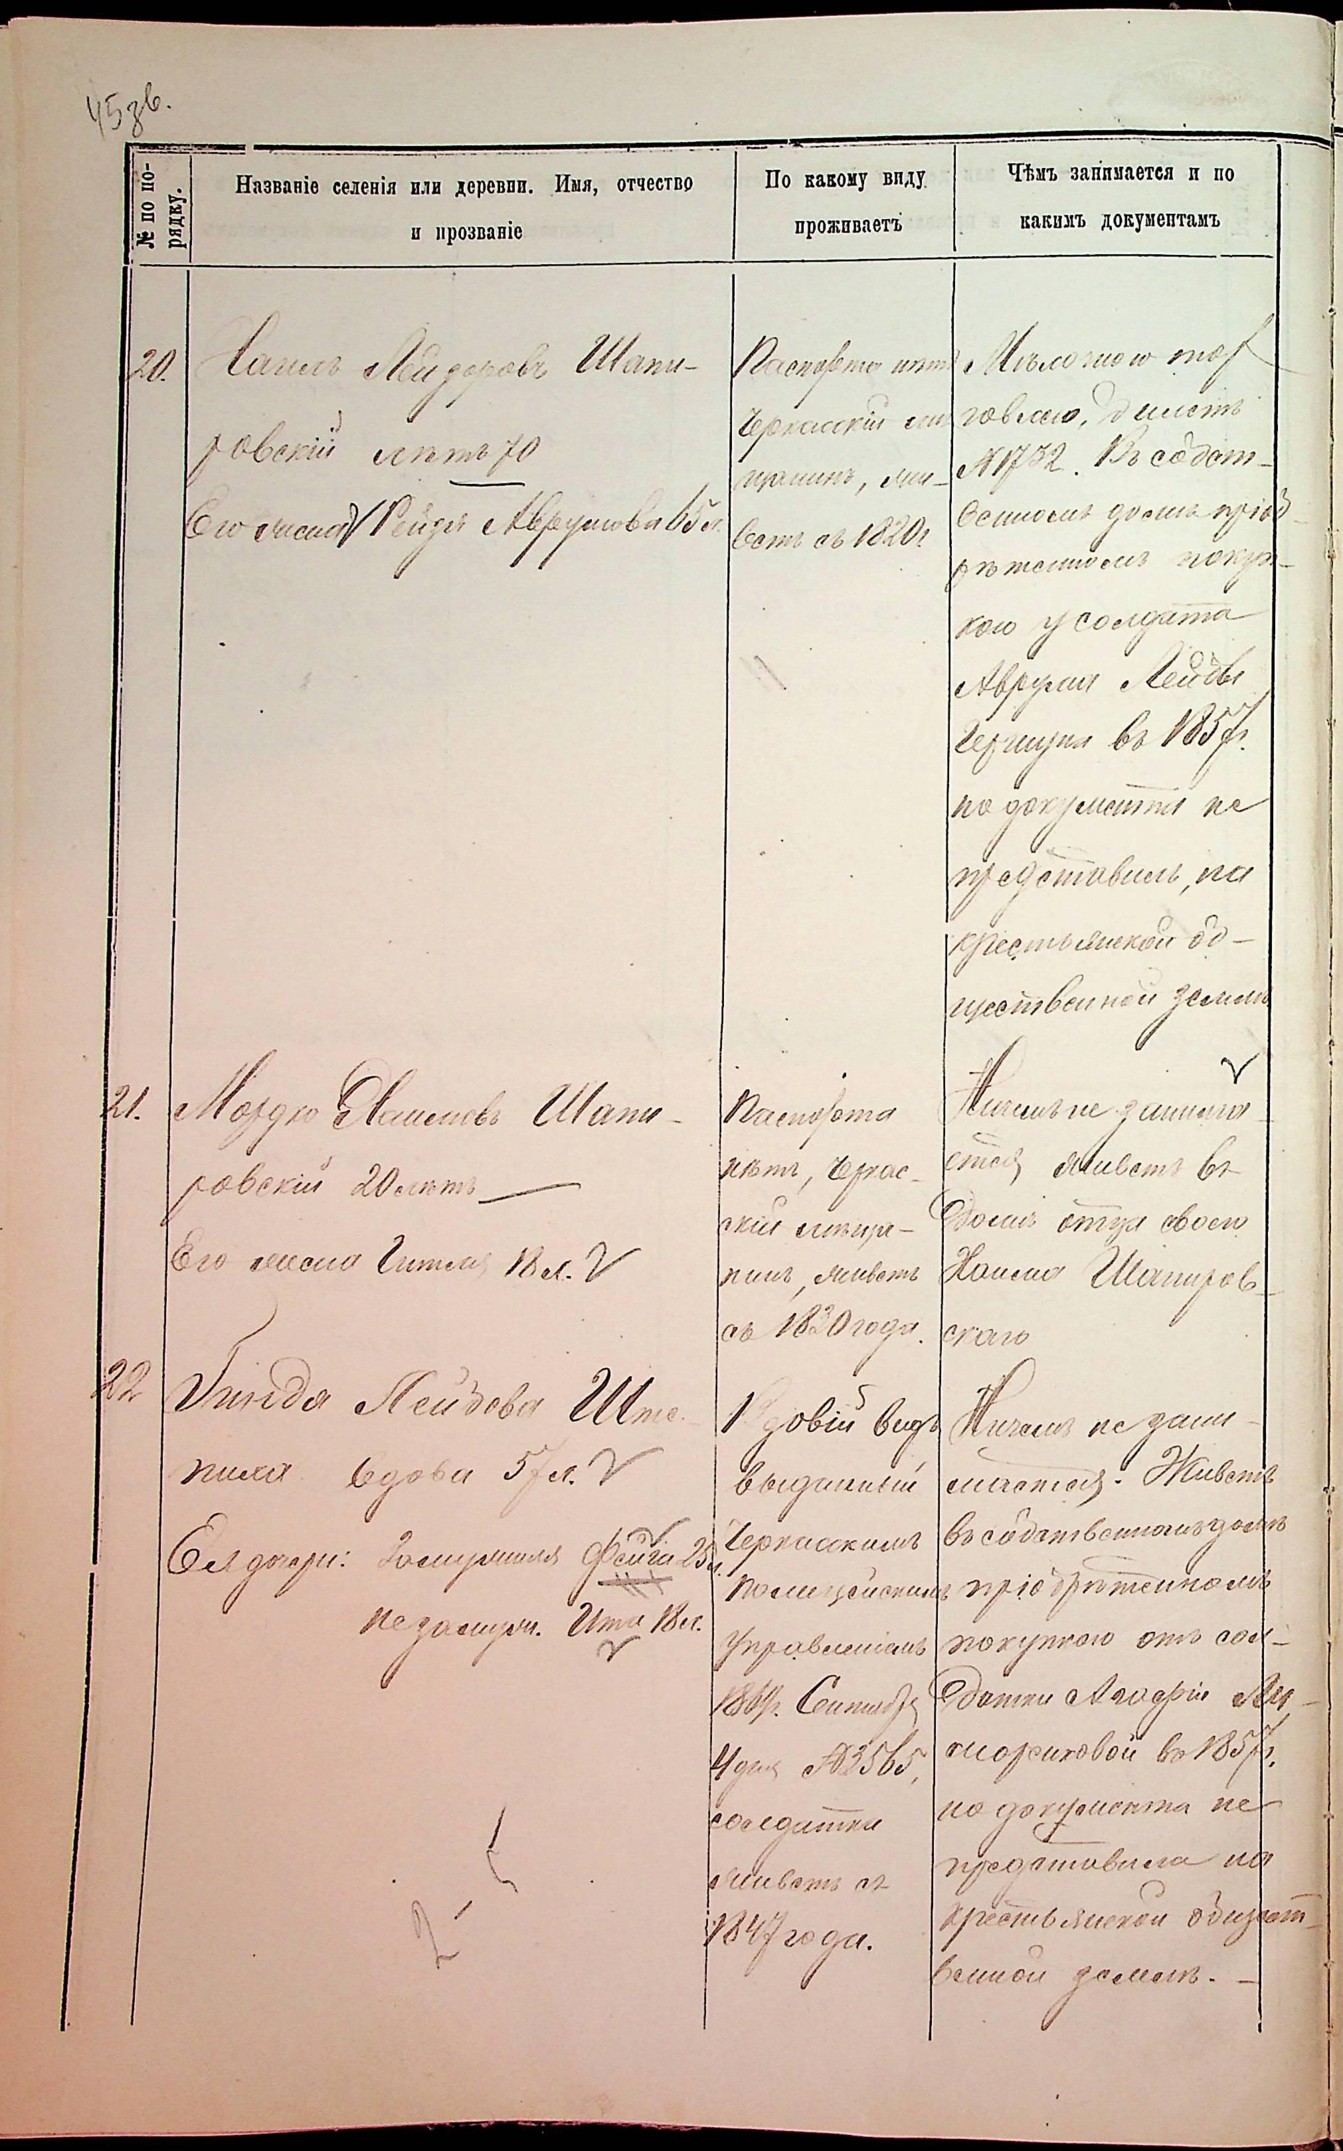 45 зв.
№ по по-
рядку.
Названіе селенія или деревни. Имя, отчество
и прозваніе
По какому виду
проживаетъ
Чѣмъ занимается и по
какимъ документамъ
20.
Хаимъ Лейзоровъ Шапи-
ровскій лѣтъ 70
Его жена Рейзя Аврумова 65 л.
Паспорта нѣтъ
Черкасскій мѣ
щанинъ, жи-
ветъ съ 1820 г.
Мѣлочною тор
говлею, билетъ
№ 1732. Въ собст-
венномъ домѣ пріоб-
рѣтенномъ покуп-
кою у солдата
Аврума Лейбы
въ 1857 г.
но документа не
представилъ, на
крестьянской об-
щественной землѣ
21.
Мордко Хаимовъ Шапи-
ровскій 20 лѣтъ
Его жена Гитля 18 л.
Паспорта
нѣтъ, Черкас-
скій мѣща-
нинъ, живетъ
съ 1830 года.
Ничемъ не занима-
ется, живетъ въ
домѣ отца своего
Хаима Шапиров-
скаго
22
Гинда Лейзова Ште-
вдова 57 л.
Ея дочери: Замужняя Фейга 25 л.
незамужн. Ита 18 л.
Вдовій видъ
выданный
Черкасскимъ
Полицейскимъ
Управленіемъ
Сентября
4 дня № 3565,
солдатка
живетъ съ
1847 года.
Ничемъ не зани-
мается. Живетъ
въ собственномъ домѣ
пріобрѣтенномъ
покупкою отъ сол-
датки
въ 1857 г.
но документа не
представила на
крестьянской общест-
венной землѣ. -
2 -